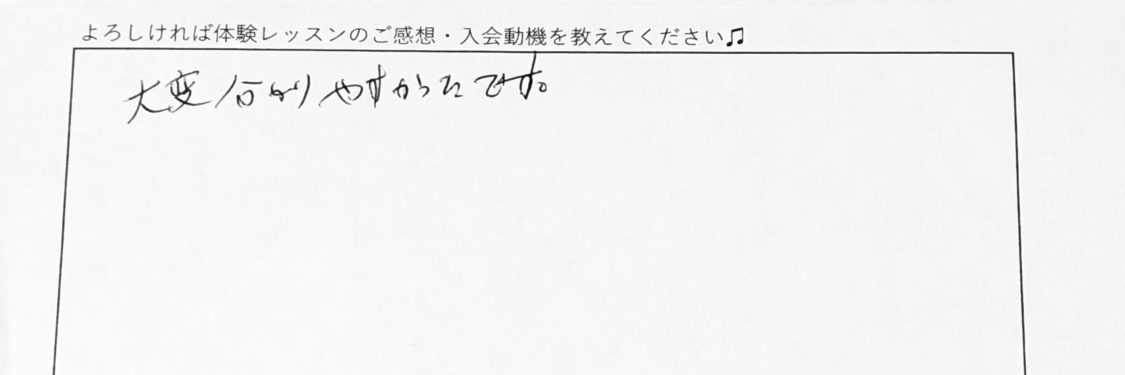 よろしければ体験レッスンのご感想・入会動機を教えてください♫
大変分かりやすかったです。